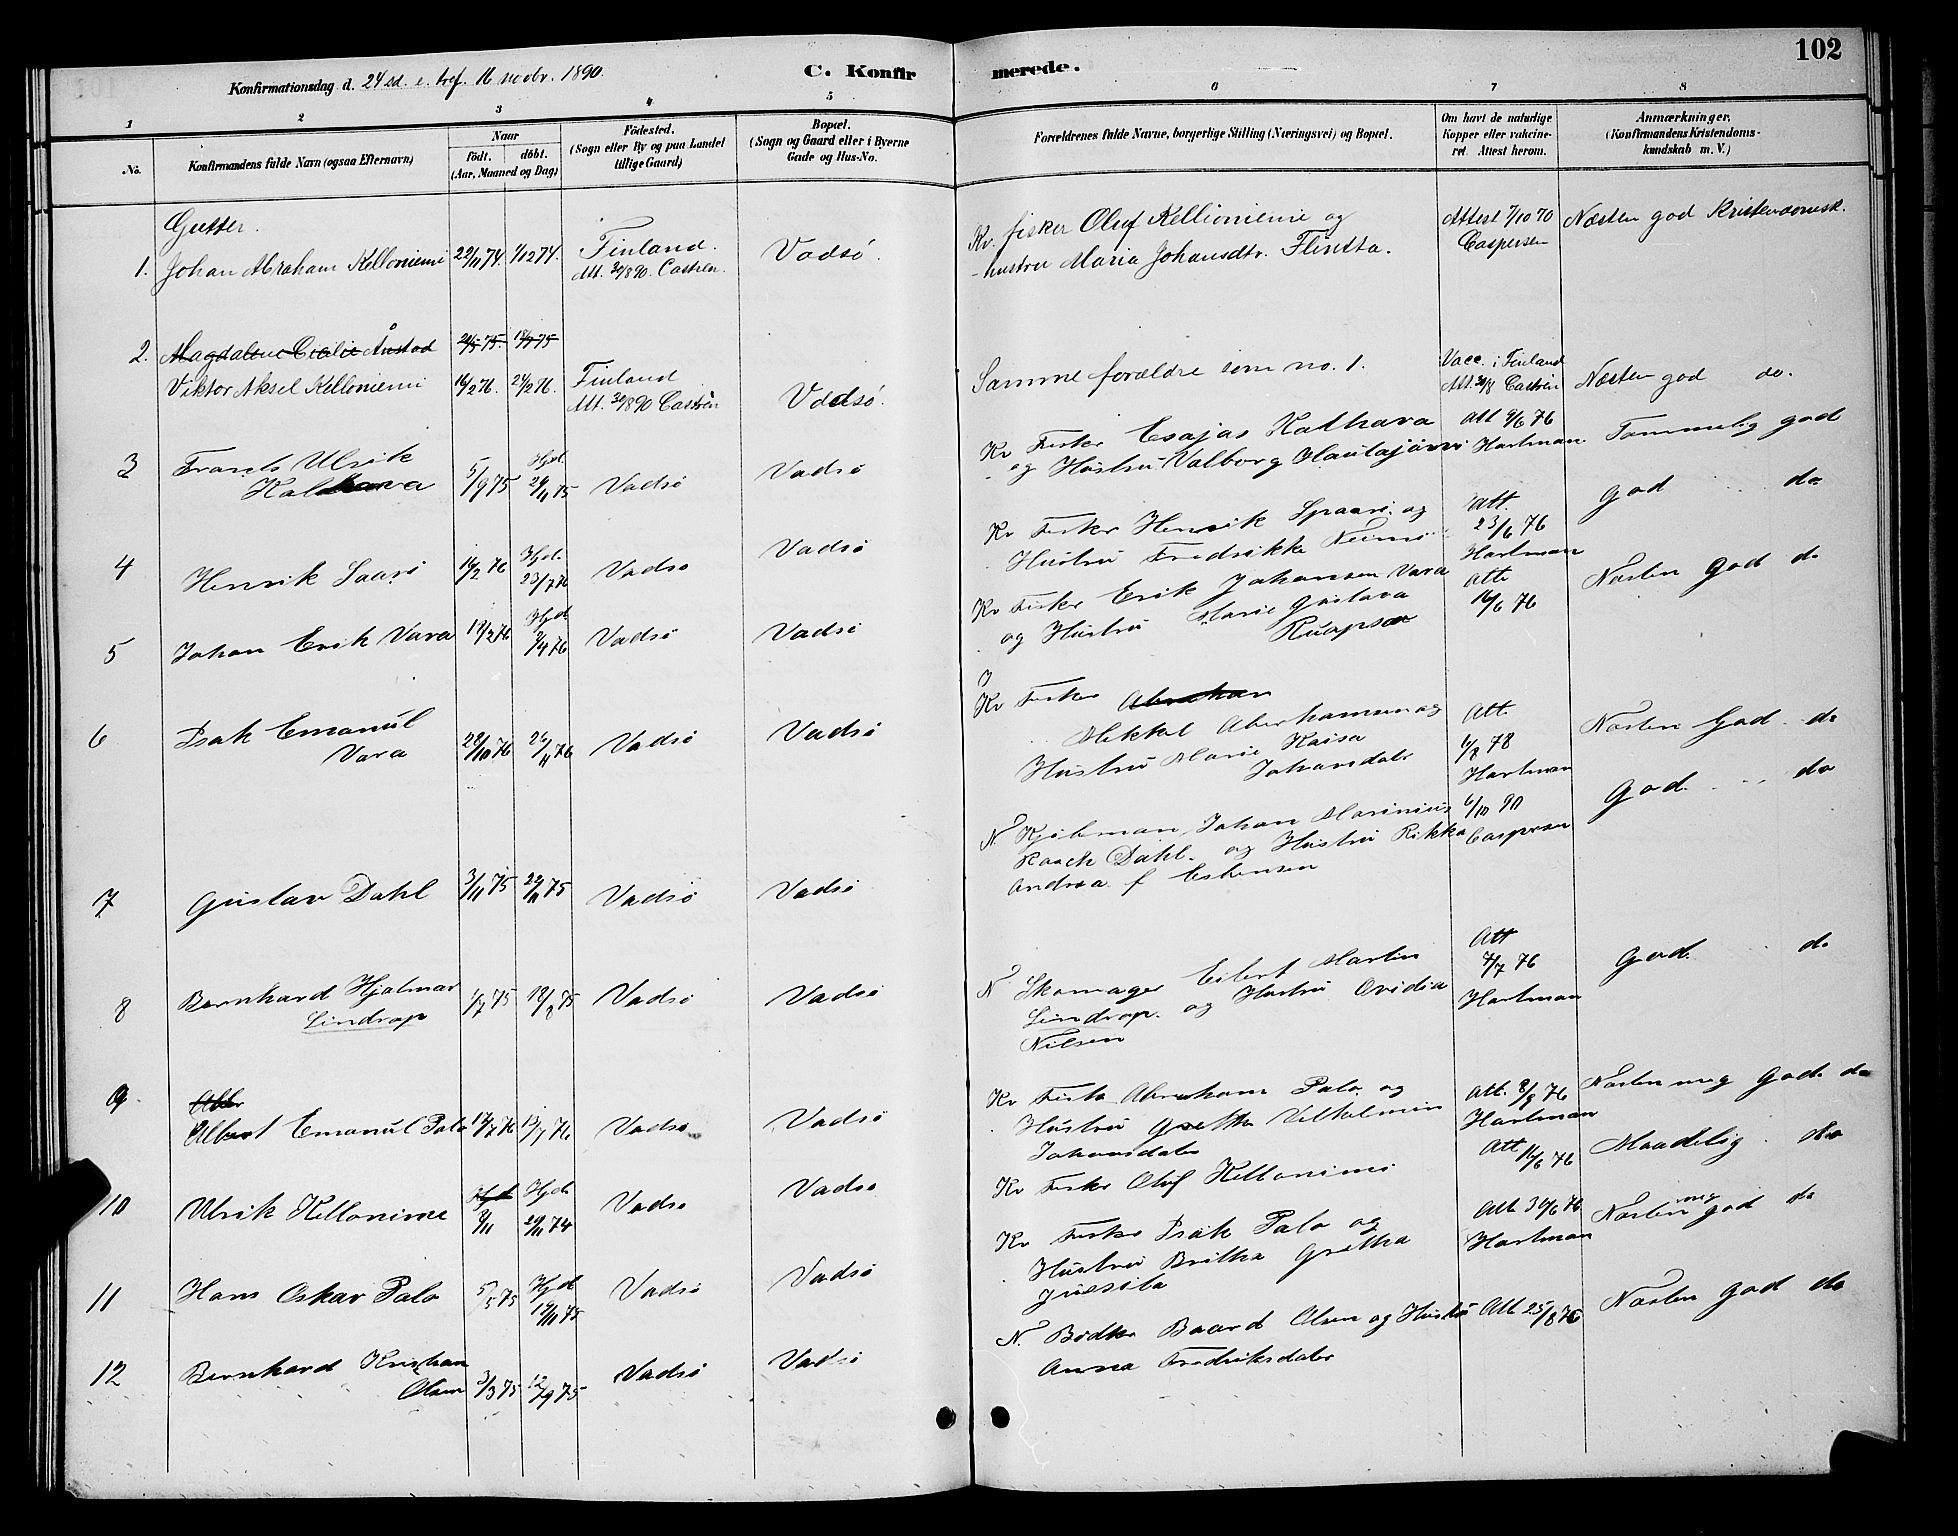 102
Konfirmationsdag d. 24 sd. e. tref. 16 novbr. 1890.
C. Konfirmerede.
1 2 3 4 5 6 7 8
No.
Konfirmandens fulde Navn (ogsaa Efternavn)
Naar
födt. döbt.
(Aar, Maaned og Dag)
Födested.
(Sogn eller By og paa Landet
tillige Gaard)
Bopæl.
(Sogn og Gaard eller i Byerne
Gade og Hus-No.
Forældrenes fulde Navne, borgerlige Stilling (Næringsvei) og Bopæl.
Om havt de naturlige
Kopper eller vakcine-
ret. Attest herom.
Anmærkninger.
(Konfirmandens Kristendoms-
kundskab m. V.)
Gutter.
1. Johan Abraham Kelloniemi 22/11 74. 1/12 74. Finland. Vadsö.
Att. 30/8 90. Castrén.
Kv. fisker Oluf Kellioniemi og
hustru Maria Johansdtr. Flindta.
Attest 7/10 70
Caspersen
Næsten god Kristendomsk.
2. Magdalene Cecilie Ånstad
Viktor Aksel Kelloniemi 16/2 76. 24/2 76. Finland Vadsö.
Att. 30/8 90 Castrén
Samme forældre som no. 1.
Vacc. i Finland
Att. 30/8 Castrén
Næsten god do.
3 Frants Ulrik
Kathava 5/9 75 Hjd. 29/11 75 Vadsö Vadsö
Kv Fisker Esajas Kathava
og Hustru Valborg Hautajärvi
Att 9/6 76
Hartman
Tammelig god
4 Henrik Saari 16/2 76 Hjd. 23/7 76 Vadsö Vadsö
Kv Fisker Henrik Spaari og
Hustru Fredrikke
Att.
23/6 76
Hartman
god do
5 Johan Erik Vara 14/2 76 Hjd. 2/4 76 Vadsö Vadsö
Kv Fisker Erik Johansen Vara
og Hustru Marie Gustava
Att
16/6 76
Næsten God do
6 Isak Emanuel
Vara 22/10 76 26/11 76 Vadsö Vadsö
Kv Fisker Abraham
Mikkel Aberhamsen og
Hustru Marie Kaisa
Johansdatr
Att.
6/8 78
Hartman
Næsten God do
7 Gustav Dahl 3/11 75 22/11 75 Vadsö Vadsö
N. Kjöbman Johan Marinius
Raack Dahl. og Hustru Rikka
Andrea f Esbensen
6/10 90
Caspersen
God do
8 Bernhard Hjalmar
Lindrop 1/7 75 19/8 75 Vadsö Vadsö
N Skomager Eilert Martin
Lindrop. og Hustru Ovidia
Nilsen
Att
7/7 76
Hartman
God do
9. Albr
Albert Emanuel Palo 17/7 76 Vadsö Vadsö
Kv Fisker Abraham Palo og
Hustru Gretha Vilhelmine
Johansdatr
Att. 8/8 76
Hartman
Næsten meg God do
10 Ulrik Kellonime Hjd 9/11 Hjd. 29/11 74 Vadsö Vadsö
Kv Fisker Oluf Kellonimi
Att 16/6 76
Maadelig do
11 Hans Oskar Palo 5/5 75 Hjd 19/11 75 Vadsö Vadsö
Kv Fisker Isak Palo og
Hustru Britha Gretha
Att 30/6 76
Hartman
Næsten meg god do
12 Bernhard Kristian
Olsen 3/3 75 12/9 75 Vadsö Vadsö
N. Bödker Baard Olsen og Hustru
Anna Fredriksdatr
Att 25/8 76
Næsten god do